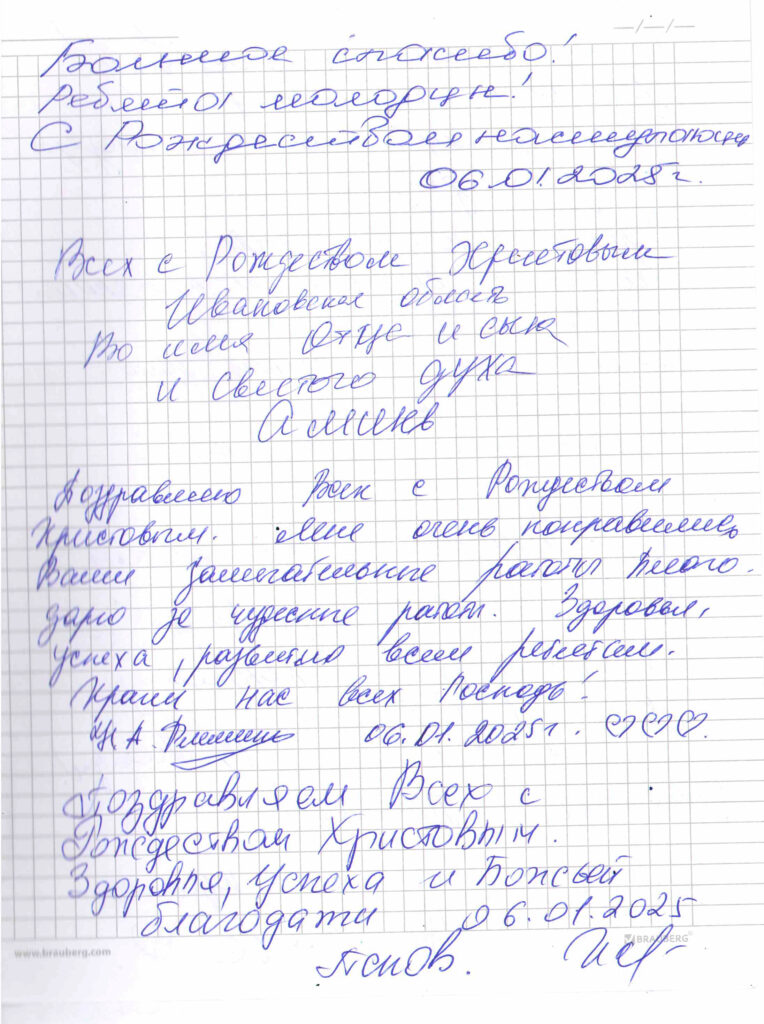 —/—/—
Большое спасибо!
Ребята молодцы!
С Рождеством наступающим
06.01.2025г.
Всех с Рождеством Христовым
Ивановская область
Во имя Отца и сына
и Святого духа
Аминь
Поздравляю Всех с Рождеством
Христовым. Мне очень понравились
Ваши замечательные работы Благо-
дарю за чудесные работы. Здоровья,
успеха, развитию всем ребятам.
Храни нас всех Господь!
Н.А. 06.01.2025г. ♡♡♡.
Поздравляем Всех с
Рождеством Христовым.
Здоровья, Успеха и Божьей
благодати 06.01.2025
BRAUBERG
www.brauberg.com